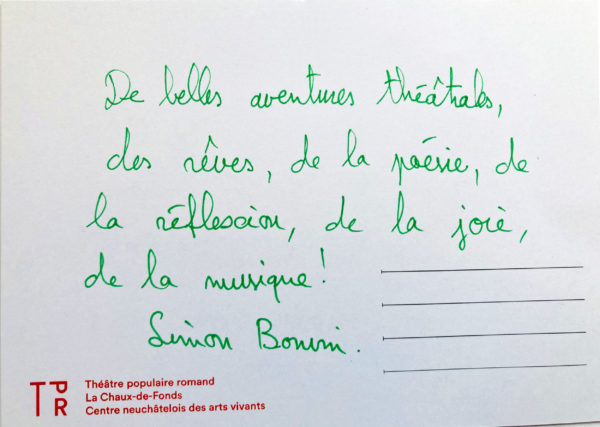 De belles aventures théâtrales,
des rêves, de la poésie, de
la réflexion, de la joie,
de la musique!
Simon
TPR
Théâtre populaire romand
La Chaux-de-Fonds
Centre neuchâtelois des arts vivants